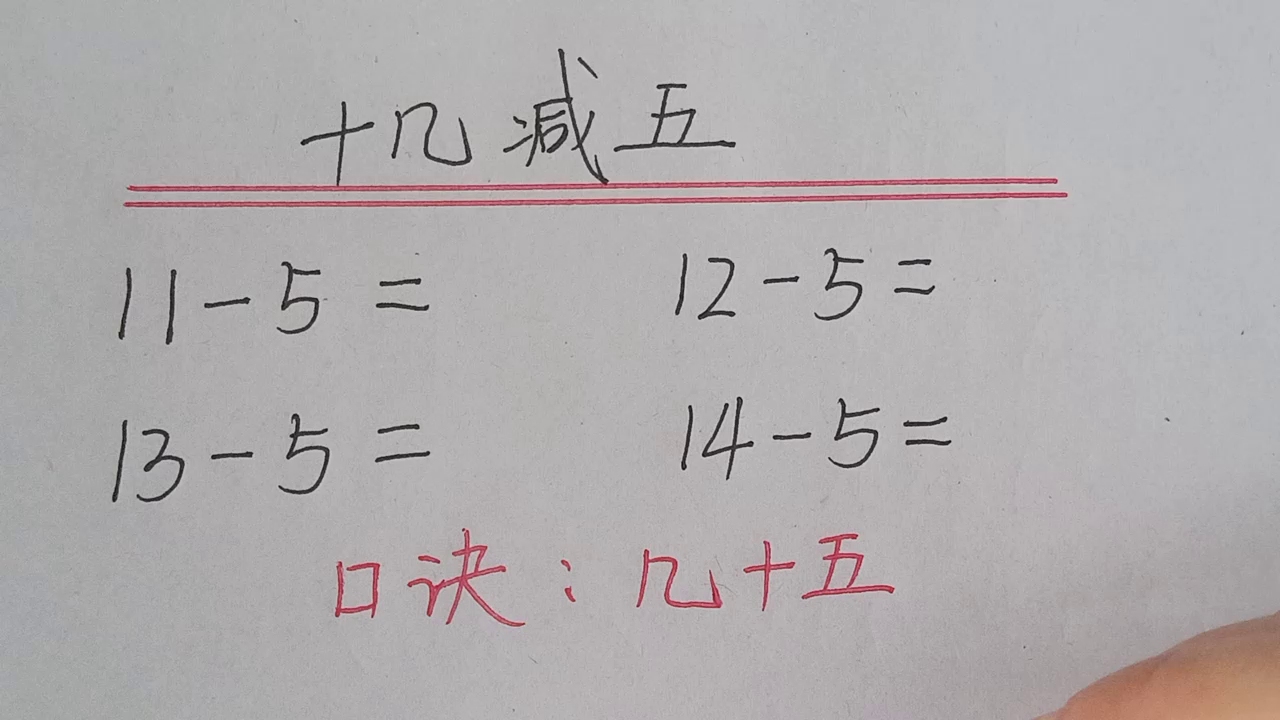 十几减五
11-5= 12-5=
13-5= 14-5=
口诀:几+五